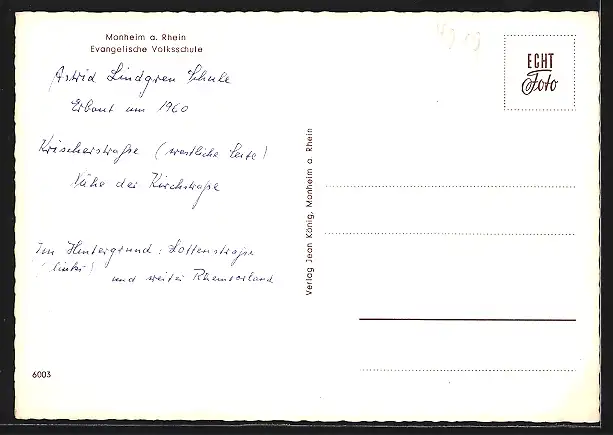 Monheim a. Rhein
Evangelische Volksschule
Astrid Lindgren Schule
Erbaut um 1960
Krischerstraße (westliche Seite)
Nähe der Kirchstraße
Im Hintergrund: Lottenstraße
(links) und weiter Rheinvorland
6003
Verlag Jean König, Monheim a. Rhein
ECHT
Foto